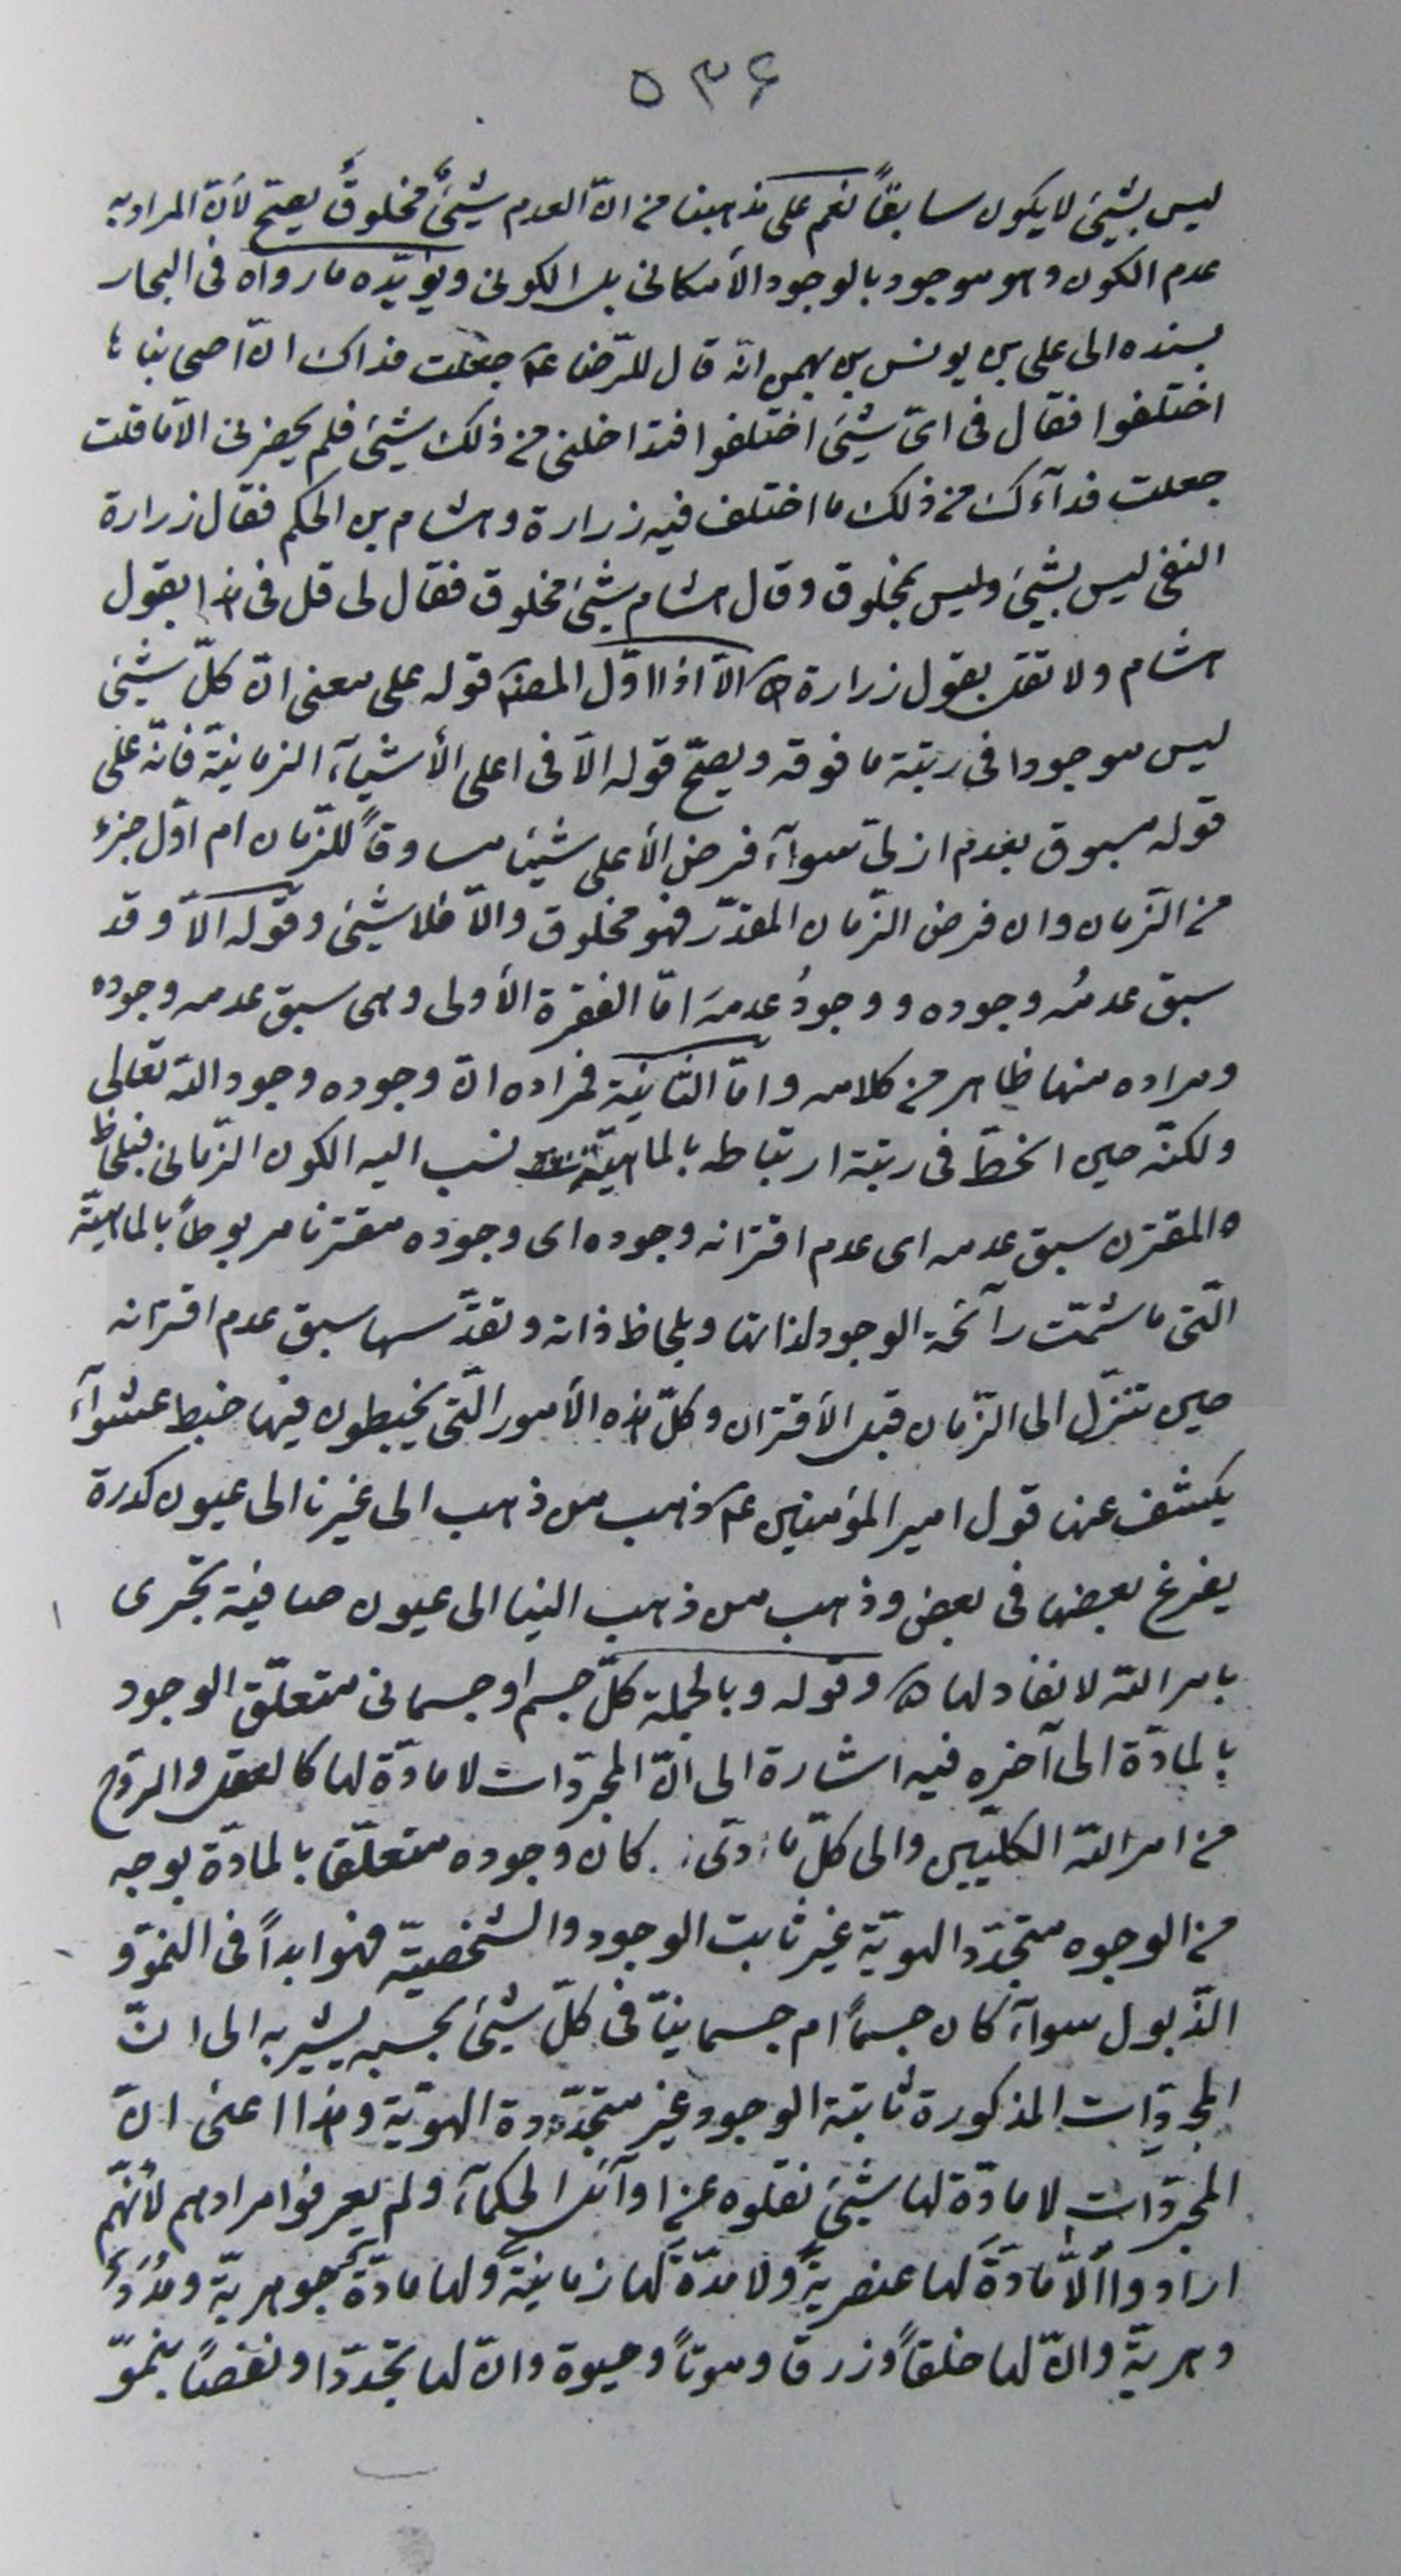 ٥٣۶
ليس بشيئ لا يكون سابقاً نعم على مذهبنا من انّ العدم شيئٌ مخلوقٌ يصحّ لأنّ المراد به
عدم الكون وهو موجود بالوجود الأمكانى بل الكونى ويؤيّده ما رواه فى البحار
بسنده الى على بن يونس بن بهمن انّه قال للرّضا عم جعلت فداك انّ اصحابنا
اختلفوا فقال فى اىّ شيئ اختلفوا فتداخلنى من ذلك شيئ فلم يحضرنى الّا ما قلت
جعلت فدآءك من ذلك ما اختلف فيه زرارة وهشام بن الحكم فقال زرارة
النفى ليس بشيئ وليس بمخلوق وقال هشام شيئ مخلوق فقال لى قل فى هذا بقول
هشام ولا تقل بقول زرارة ه الّا اذا اوّل المصنّف قوله على معنى انّ كلّ شيئ
ليس موجودا فى رتبة ما فوقه ويصحّ قوله الّا فى اعلى الأشيآء الزمانيّة فانّه على
قوله مسبوق بعدم ازلىّ سوآء فرض الأعلى شيئا مساوقاً للزّمان ام اوّل جزء
من الزّمان وان فرض الزّمان المقدّر فهو مخلوق والّا فلا شيئ وقوله الّا وقد
سبق عدمُه وجوده ووجودُ عدمَه امّا الفقرة الأولى وهى سبق عدمه وجوده
ومراده منها ظاهر من كلامه وامّا الثّانية فمراده انّ وجوده وجود اللّه تعالى
ولكنّه حين انخطّ فى رتبة ارتباطه بالماهيّة نسب اليه الكون الزّمانى فبلحاظ
ه المقترن سبق عدمه اى عدم اقترانه وجوده اى وجوده مقترنا مربوطاً بالماهيّة
الّتى ما شمّت رآئحة الوجود لذاتها وبلحاظ ذاته وتقدّسها سبق عدم اقترانه
حين تنزّل الى الزّمان قبل الأقتران وكلّ هذه الأمور الّتى يخبطون فيها خبط عشوآء
يكشف عنها قول امير المؤمنين عم ذهب من ذهب الى غيرنا الى عيون كدرة
يفرغ بعضها فى بعض وذهب من ذهب الينا الى عيون صافية تجرى
بامر اللّه لا نفاد لها ه وقوله وبالجملة كلّ جسم او جسمانى متعلّق الوجود
بالمادّة الى آخره فيه اشارة الى انّ المجرّدات لا مادّة لها كالعقل والرّوح
من امر اللّه الكليّين والى كلّ ما كان وجوده متعلّقا بالمادّة بوجه
من الوجوه متجدّد الهويّة غير ثابت الوجود والشخصيّة فهو ابداً فى النموّ و
الذّبول سوآء كان جسماً ام جسمانيّا فى كلّ شيئ بحسبه يشير به الى انّ
المجرّدات المذكورة ثابتة الوجود غير متجدّدة الهويّة وهذا اعنى انّ
المجرّدات لا مادّة لها شيئ نقلوه عن اوآئل الحكمآء ولم يعرفوا مرادهم لأنّهم
ارادوا الّا مادّةَ لها عنصريةً ولا مدّة لها زمانيّةً ولها مادّة جوهريّة ومُدَدٌ
دهريّة وانّ لها خلقاً ورزقا وموتاً وحيوة وانّ لها تجدّدا ونقصًا بنموّ